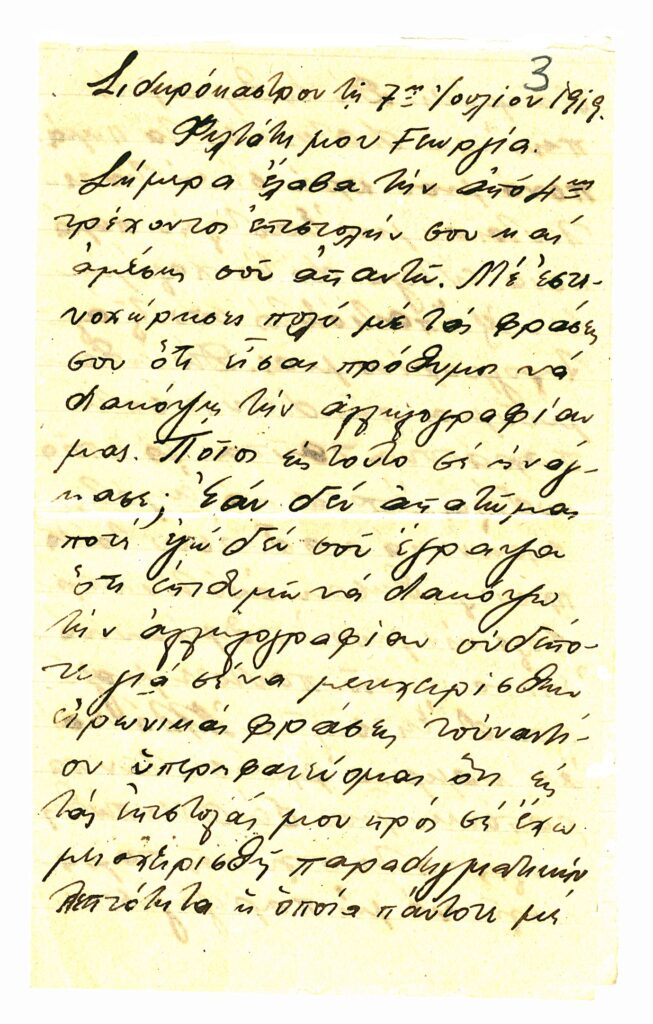 3
Σιδηρόκαστρον τῇ 7ῃ Ἰουλίου 1919.
Φιλτάτη μου Γεωργία.
Σήμερα ἔλαβα τὴν ἀπό 4ης
τρέχοντος ἐπιστολήν σου καί
ἀμέσως σοῦ ἀπαντῶ. Μέ ἐστε-
νοχώρησες πολύ μέ τάς φράσεις
σου ὅτι εἶσαι πρόθυμος νά
διακόψῃς τὴν ἀλληλογραφίαν
μας. Ποῖος εἰς τοῦτο σέ ἠνάγ-
κασε; Ἐάν δέν ἀπατῶμαι
ποτέ ἐγώ δέν σοῦ ἔγραψα
ὅτι ἐπιθυμῶ νά διακόψω
τὴν ἀλληλογραφίαν οὐδέπο-
τε γιά σένα μετεχειρίσθην
εἰρωνικάς φράσεις τοὐναντί-
ον ὑπερηφανεύομαι ὅτι εἰς
τάς ἐπιστολάς μου πρός σέ ἔχω
μεταχειρισθῆ παραδειγματικήν
λεπτότητα ἡ ὁποία πάντοτε μέ